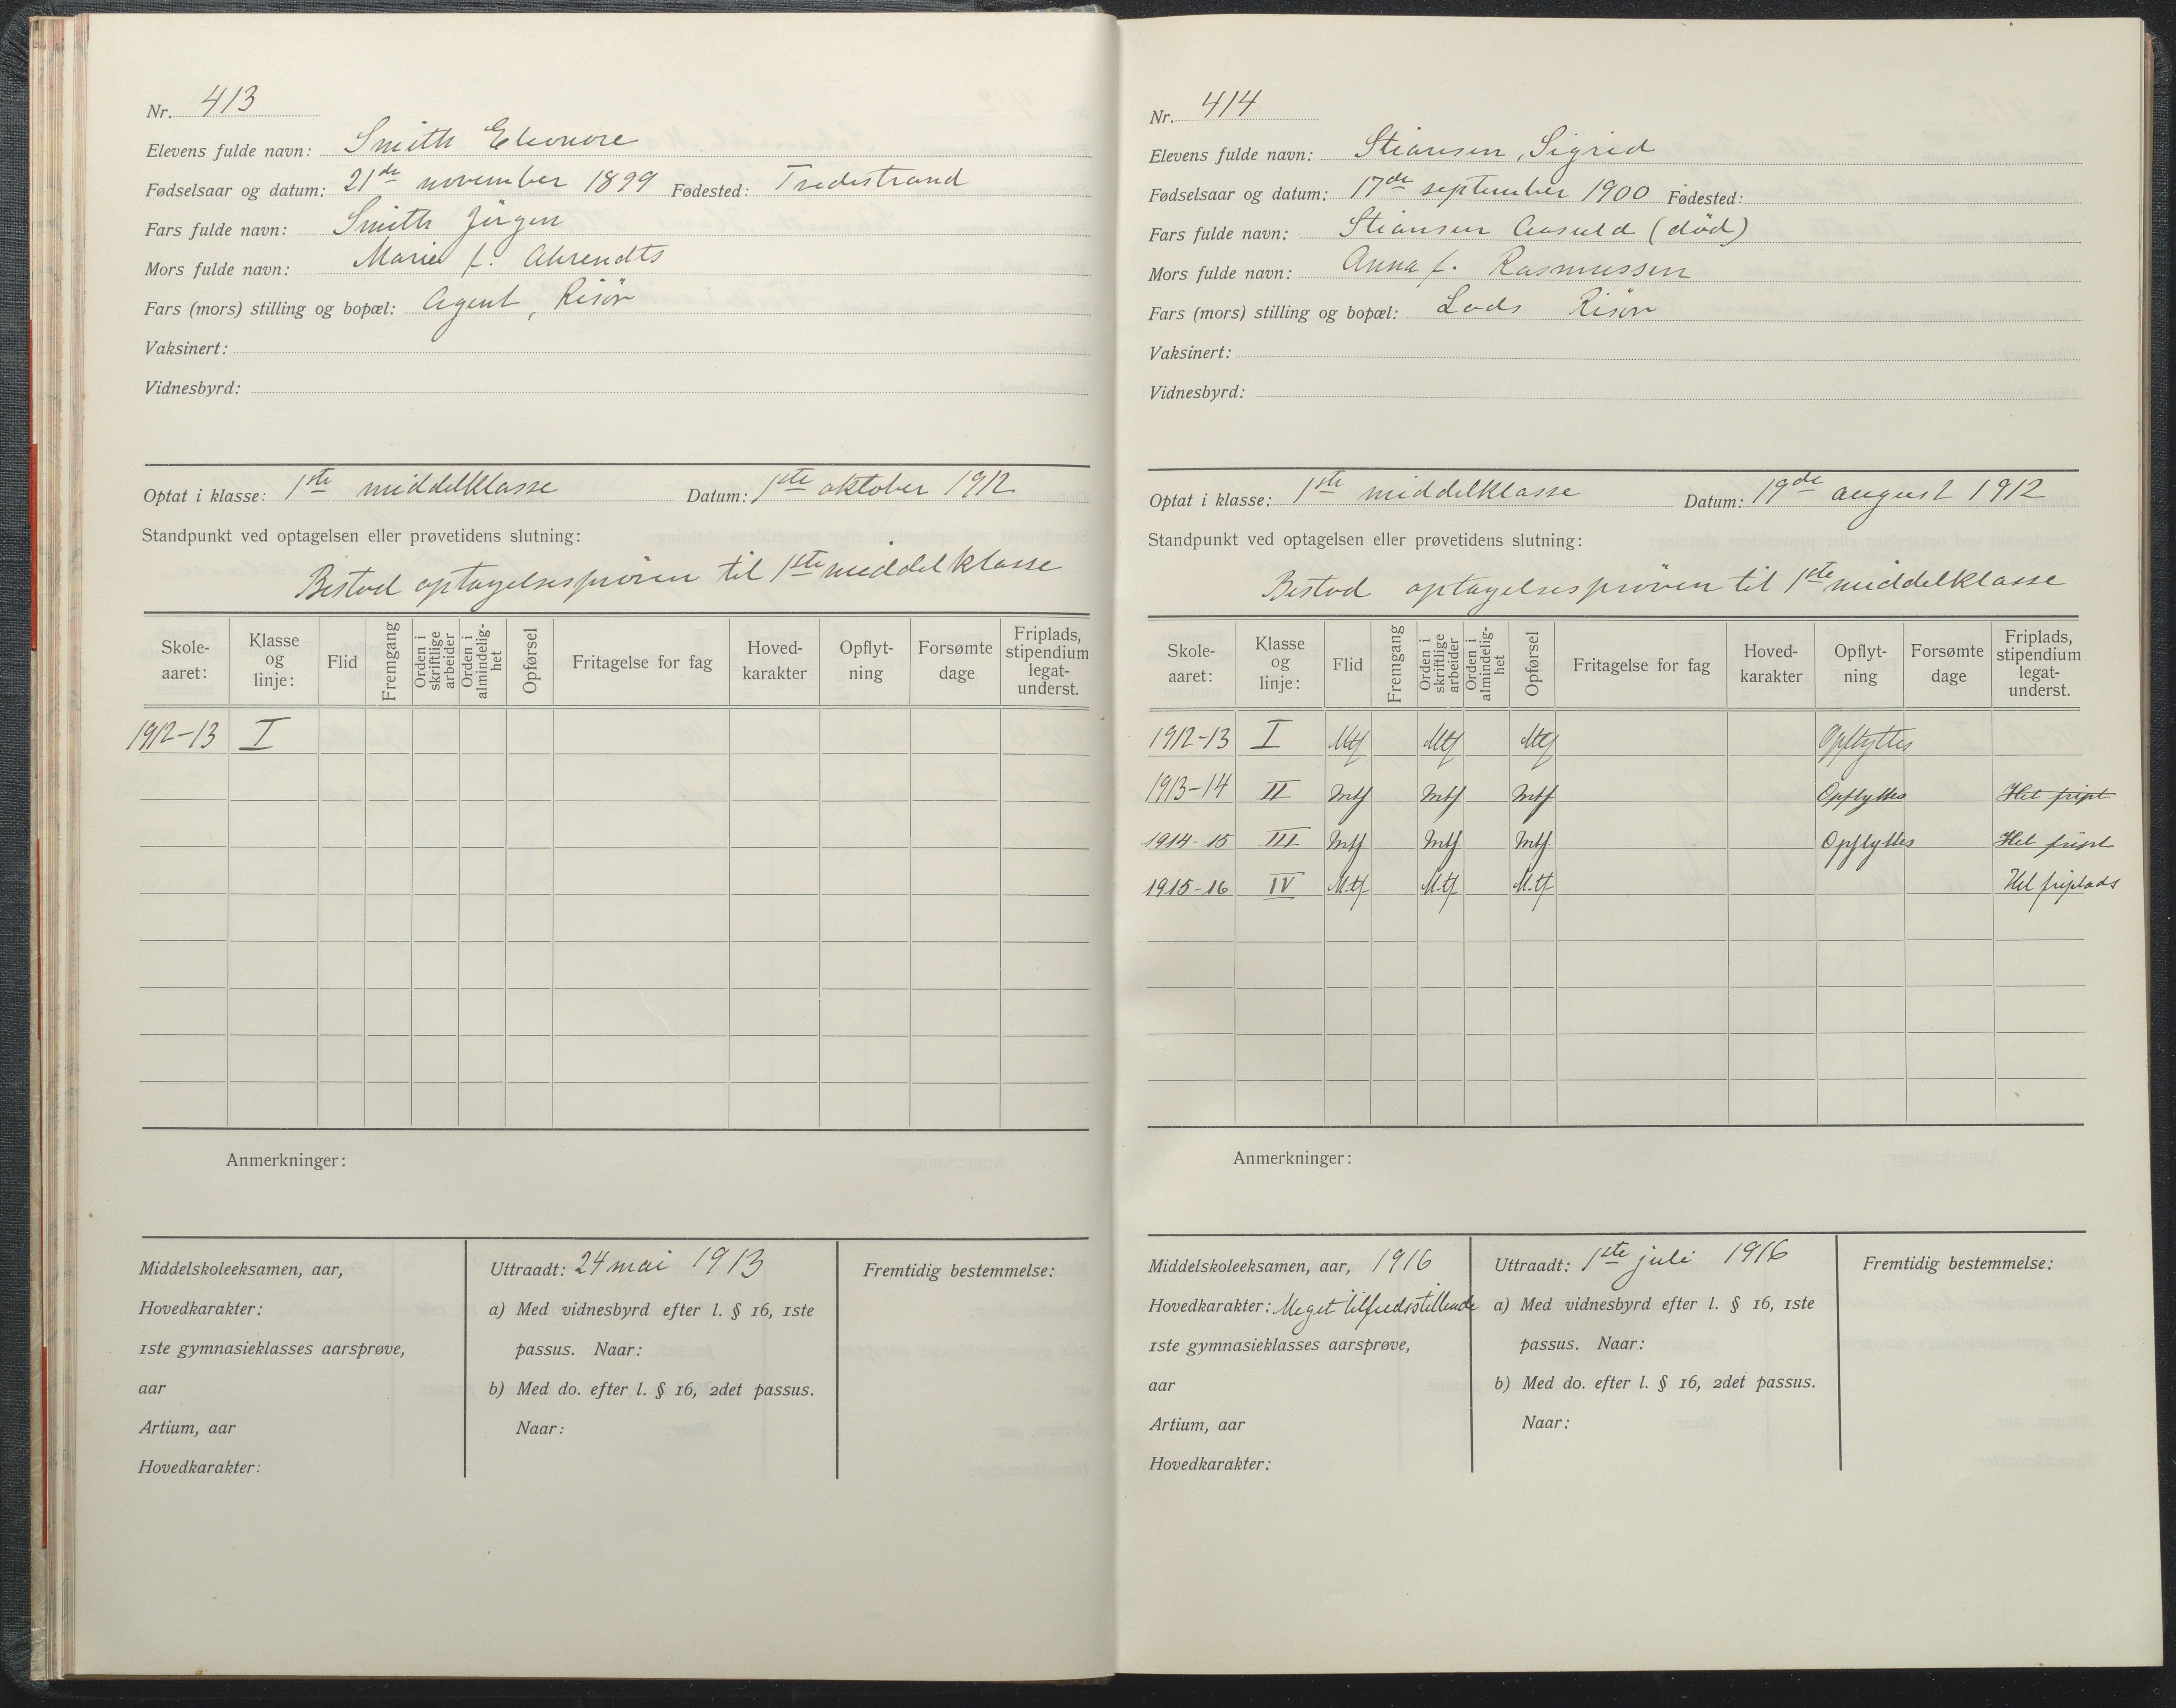 Nr. 413
Elevens fulde navn: Smith Eleonore
Fødselsaar og datum: 21de november 1899 Fødested: Tvedestrand
Fars fulde navn: Smith Jørgen
Mors fulde navn: Marie f. Ahrendts
Fars (mors) stilling og bopæl: Agent, Risør
Vaksinert:
Vidnesbyrd:
Optat i klasse: 1ste middelklasse Datum: 1ste oktober 1912
Standpunkt ved optagelsen eller prøvetidens slutning:
Bestod optagelsesprøven til 1ste middelklasse
Skole-aaret: Klasse og linje: Flid Fremgang Orden i skriftlige arbeider Orden i almindelig-het Opførsel Fritagelse for fag Hoved-karakter Opflyt-ning Forsømte dage Friplads, stipendium legat-underst.
1912-13 I
Anmerkninger:
Middelskoleeksamen, aar,
Hovedkarakter:
1ste gymnasieklasses aarsprøve,
aar
Artium, aar
Hovedkarakter:
Uttraadt: 24 mai 1913
a) Med vidnesbyrd efter l. § 16, 1ste
passus. Naar:
b) Med do. efter l. § 16, 2det passus.
Naar:
Fremtidig bestemmelse:
Nr. 414
Elevens fulde navn: Stiansen, Sigrid
Fødselsaar og datum: 17de september 1900 Fødested:
Fars fulde navn: Stiansen Aasuld (død)
Mors fulde navn: Anna f. Rasmussen
Fars (mors) stilling og bopæl: Lods Risør
Vaksinert:
Vidnesbyrd:
Optat i klasse: 1ste middelklasse Datum: 19de august 1912
Standpunkt ved optagelsen eller prøvetidens slutning:
Bestod optagelsesprøven til 1ste middelklasse
Skole-aaret: Klasse og linje: Flid Fremgang Orden i skriftlige arbeider Orden i almindelig-het Opførsel Fritagelse for fag Hoved-karakter Opflyt-ning Forsømte dage Friplads, stipendium legat-underst.
1912-13 I Mtf Mtf Mtf Opflyttes
1913-14 II Mtf Mtf Mtf Opflyttes Hel fripl.
1914-15 III Mtf Mtf Mtf. Opflyttes Hel fripl.
1915-16 IV M.tf M.tf M.tf Hel friplads
Anmerkninger:
Middelskoleeksamen, aar, 1916
Hovedkarakter: Meget tilfredsstillende
1ste gymnasieklasses aarsprøve,
aar
Artium, aar
Hovedkarakter:
Uttraadt: 1ste juli 1916
a) Med vidnesbyrd efter l. § 16, 1ste
passus. Naar:
b) Med do. efter l. § 16, 2det passus.
Naar:
Fremtidig bestemmelse: